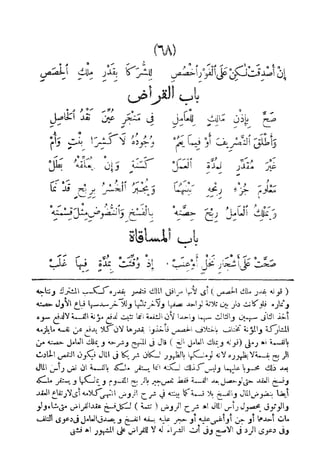 (٦٨)
إن أصدقت لكن على الفور أخصص للشركا بقدر ملك الحصص
باب القراض
صح بإذن مالك للعامل في متجر عين نقد الحاصل
وأطلق التصريف أو فيما يعم وجوده لا كشرا بنت وأم
غير مقدر لمدة العمل كسنة وإن يعلقه بطل
معلوم جزء ربحه بينهما ويجبر الخسر بربح قد نما
ويملك العامل ربح حصته بالفسخ والنضوض مثل قسمته
باب المساقاة
صحت على أشجار نخل أو عنب إذ وقتت بمدة فيها غلب
(قوله بقدر ملك الحصص) أي لأنها مرافق الملك فتقدر بقدره ككسب المشترك ونتاجه
وثماره فلو كانت دار بين ثلاثة لواحد نصفها ولآخر ثلثها وللآخر سدسها فباع الأول حصته
أخذ الثاني سهمين والثالث سهما واحدا لأن الشفعة إنما تثبت لدفع مؤنة القسمة لا لدفع سوء
المشاركة والمؤنة تختلف باختلاف الحصص فأخذوا بقدرها لأن كلا يدفع عن نفسه ما يلزمه
بالقسمة اه رملي (قوله ويملك العامل الخ) قال في المنهج وشرحه و يملك العامل حصته من
الربح بقسمة لا بظهوره لأنه لو ملكها بالظهور لكان شريكا في المال فيكون النقص الحادث
بعد ذلك محسوبا عليهما وليس كذلك لكنه إنما يستقر ملكه بالقسمة إن نض رأس المال
وفسخ العقد حتى لو حصل بعد القسمة فقط نقص جبر بالربح المقسوم و يملكها و يستقر ملكه
أيضا بنضوض المال والفسخ بلا قسمة كما بينته في شرح الروض انتهى كلامه أي لارتفاع العقد
والوثوق بحصول رأس المال اه شرح الروض (تتمة) لكل فسخ عقد القراض متى شاء ولو
مات أحدهما أو جن أو أغمي عليه أو حجر عليه بسفه انفسخ و يصدق العامل في دعوى التلف
وفي دعوى الرد في الأصح وفي أنت الشراء له لا للقراض على المشهور اه فشني